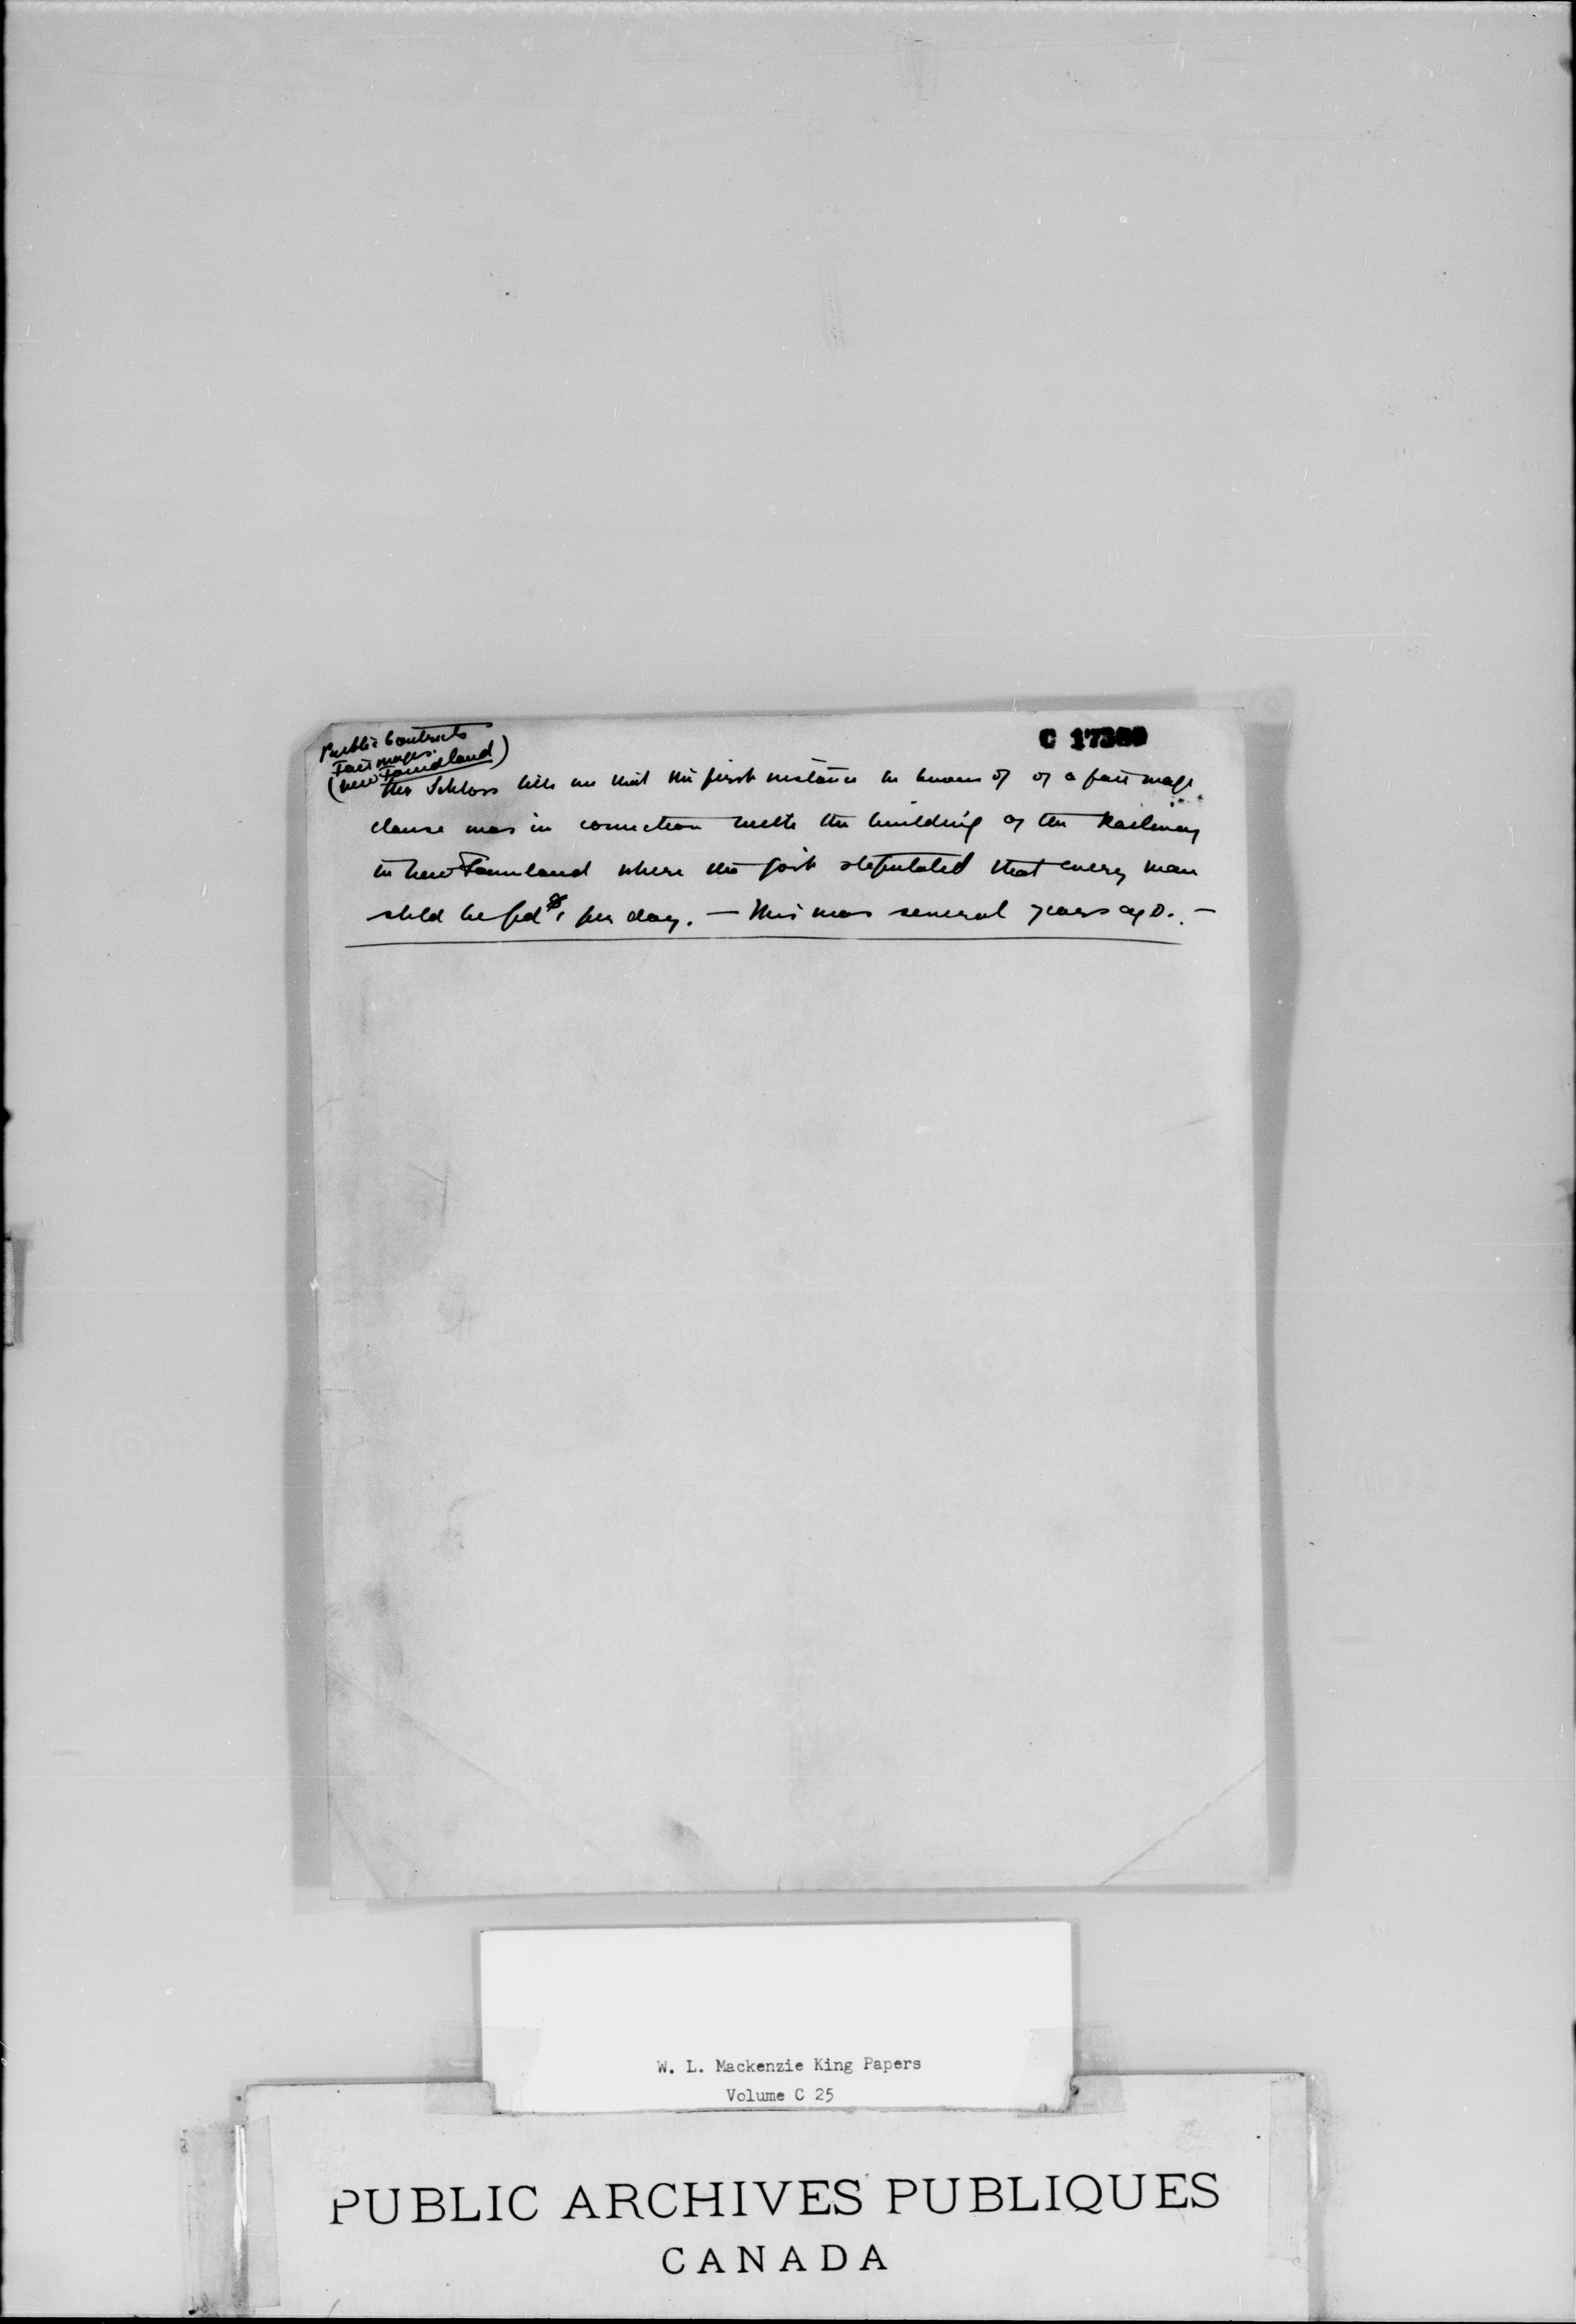 Public Contracts
Fair Wages.
(New Foundland)
C 17309
Mr Schloss tells me that the first instance he knows of of a fair wage
clause was in connection with the building of the Railway
in New Founland where the govt stipulated that every man
shld be pd $1 per day. — This was several years ago. —
W. L. Mackenzie King Papers
Volume C 25
PUBLIC ARCHIVES PUBLIQUES
CANADA